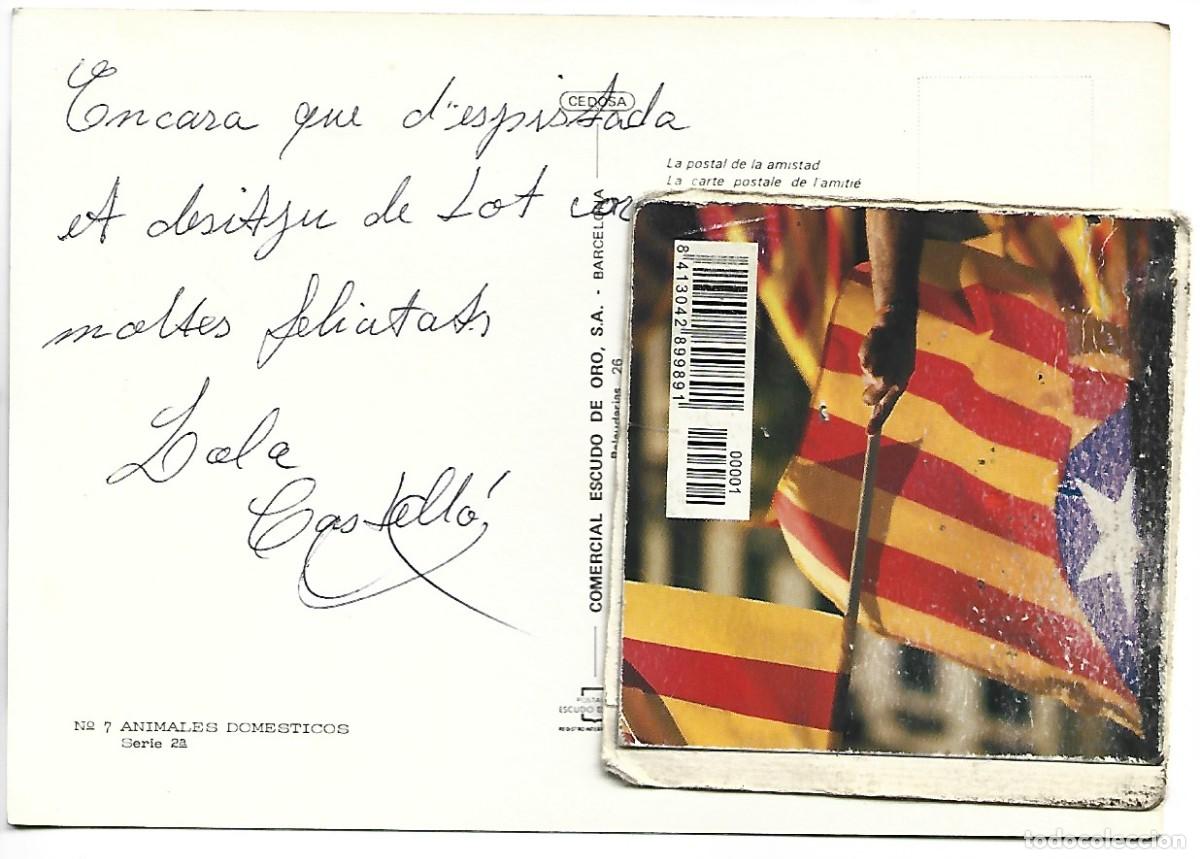 Encara que d'espistada
et desitju de tot cor
moltes felicitats
Lola
Castelló
CEDOSA
La postal de la amistad
La carte postale de l'amitié
COMERCIAL ESCUDO DE ORO, S.A. - BARCELONA
26
8 413042 899891
00001
Nº 7 ANIMALES DOMESTICOS
Serie 2ª
ESCUDO
todocoleccion